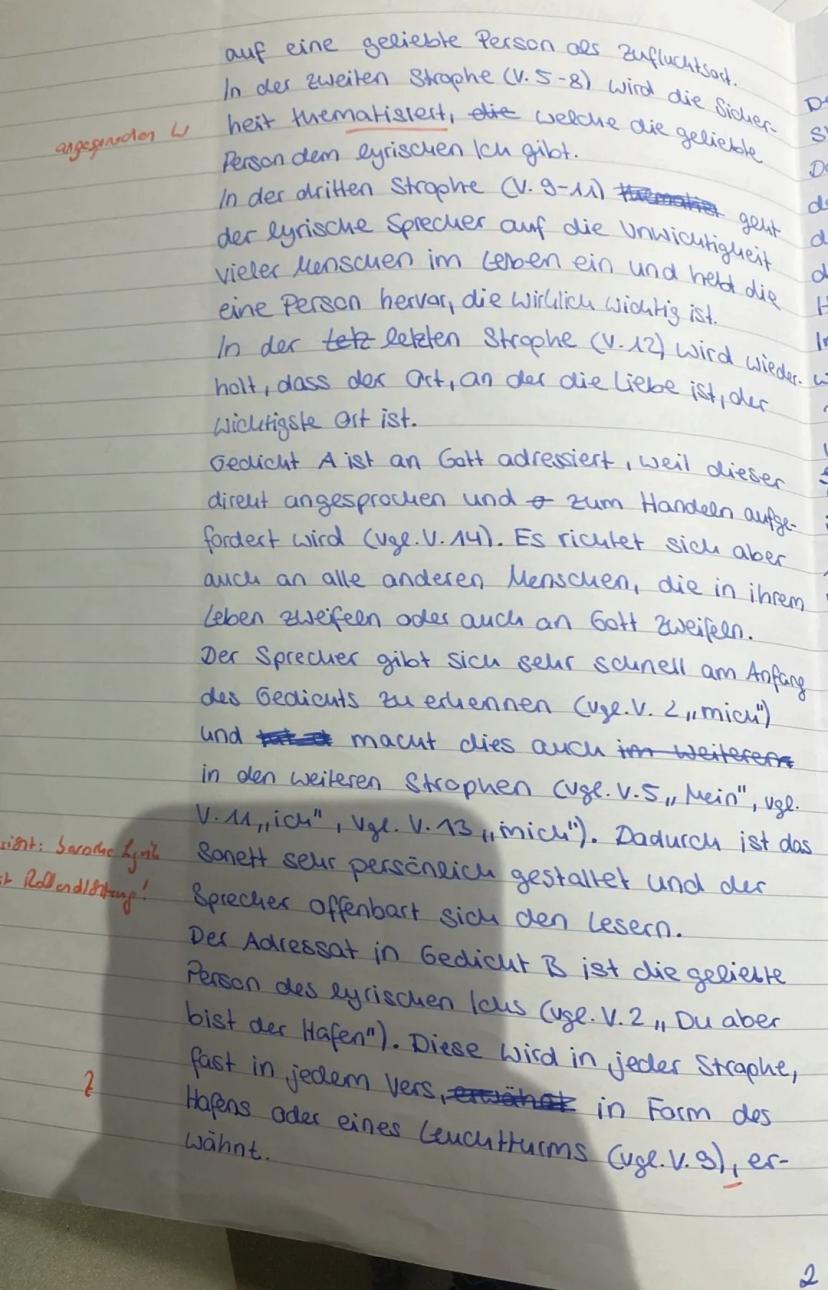 auf eine geliebte Person als Zufluchtsort.
In der zweiten Strophe (V. 5-8) wird die Sicher-
heit thematisiert, die welche die geliebte
angesprochen
Person dem lyrischen Ich gibt.
In der dritten Strophe (V. 9-11) geht
der lyrische Sprecher auf die Unwichtigkeit
vieler Menschen im Leben ein und hebt die
eine Person hervor, die wirklich wichtig ist.
In der letz letzten Strophe (V. 12) wird wieder-
holt, dass der Ort, an der die Liebe ist, der
wichtigste Ort ist.
Gedicht A ist an Gott adressiert, weil dieser
direkt angesprochen und zum Handeln aufge-
fordert wird (vgl. V. 14). Es richtet sich aber
auch an alle anderen Menschen, die in ihrem
Leben zweifeln oder auch an Gott zweifeln.
Der Sprecher gibt sich sehr schnell am Anfang
des Gedichts zu erkennen (vgl. V. 2 „mich")
und macht dies auch im weiteren
in den weiteren Strophen (vgl. V. 5 „Mein", vgl.
V. 11 „ich", vgl. V. 13 „mich"). Dadurch ist das
Sonett sehr persönlich gestaltet und der
barocke Lyrik
Sprecher offenbart sich den Lesern.
Rollendichtung!
Der Adressat in Gedicht B ist die geliebte
Person des lyrischen Ichs (vgl. V. 2 „Du aber
bist der Hafen"). Diese wird in jeder Strophe,
fast in jedem Vers, erwähnt in Form des
Hafens oder eines Leuchtturms (vgl. V. 9), er-
wähnt.
2